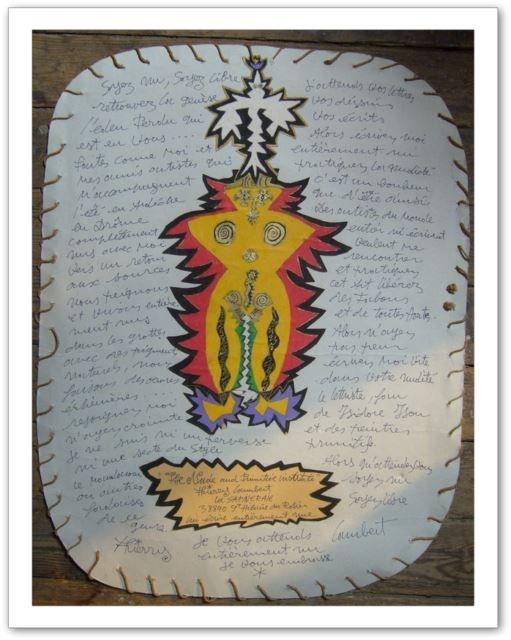 Soyez nu, Soyez libre
retrouvez la genèse
l'eden Perdu qui
est en Vous ....
faites comme Moi et
mes amis artistes qui
M'accompagnent
l'été en Ardèche
en Drôme
complètement
nus avec Moi
vers un retour
aux sources
nous peignons
et vivons entière
ment nus
dans les grottes
avec des pigments
naturels, nous
faisons des œuvres
éphémères ....
rejoignez moi
n'ayez crainte
Je ne suis ni un perverse
ni une secte du Style
le
ou autres
de ce
genre.
Thierry
J'attends Vos lettres
Vos dessins
Vos écrits
Alors écrivez moi
entièrement nu
pratiquez la nudité
c'est un bonheur
que d'être ainsi
Des artistes du Monde
entier m'écrivent
veulent me
rencontrer
et pratiquer
cet art libéré
des tabous
et de toutes
Alors n'ayez
pas peur
écrivez Moi vite
dans votre nudité
le lettriste, fan
de Isidore Isou
et des peintres
primitifs
Alors qu'attendez vous
Soyez nu
Soyez libre
Lambert
The Nude and Primitive institute
Thierry Lambert
38840 St Hilaire du Rosier
entièrement nue
Je Vous attends
entièrement nu
Je vous embrasse